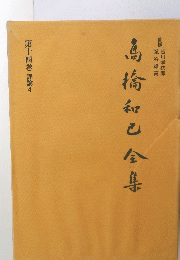 高橋和巳全集
第十四巻 評論4